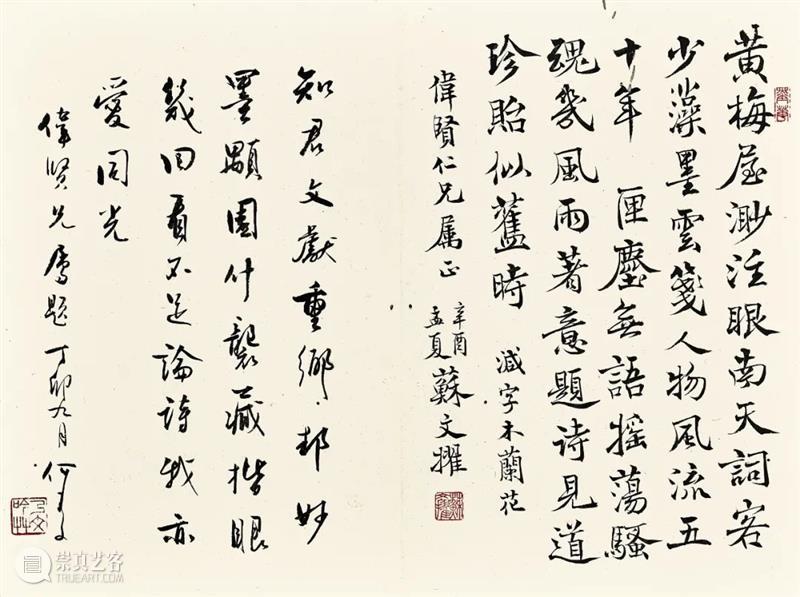 黃梅屋渺注眼南天詞客
少藻墨雲箋人物風流五
十年 匣塵無語搖蕩騷
魂幾風雨著意題詩見道
珍貽似舊時 減字木蘭花
偉賢仁兄属正 辛酉
孟夏 蘇文擢
知君文獻重鄉邦妙
墨顒園什襲藏揩眼
幾回看不足論詩我亦
愛同光
偉賢兄屬題 丁卯九月 何乃文
崇真艺客
TRUEART.COM